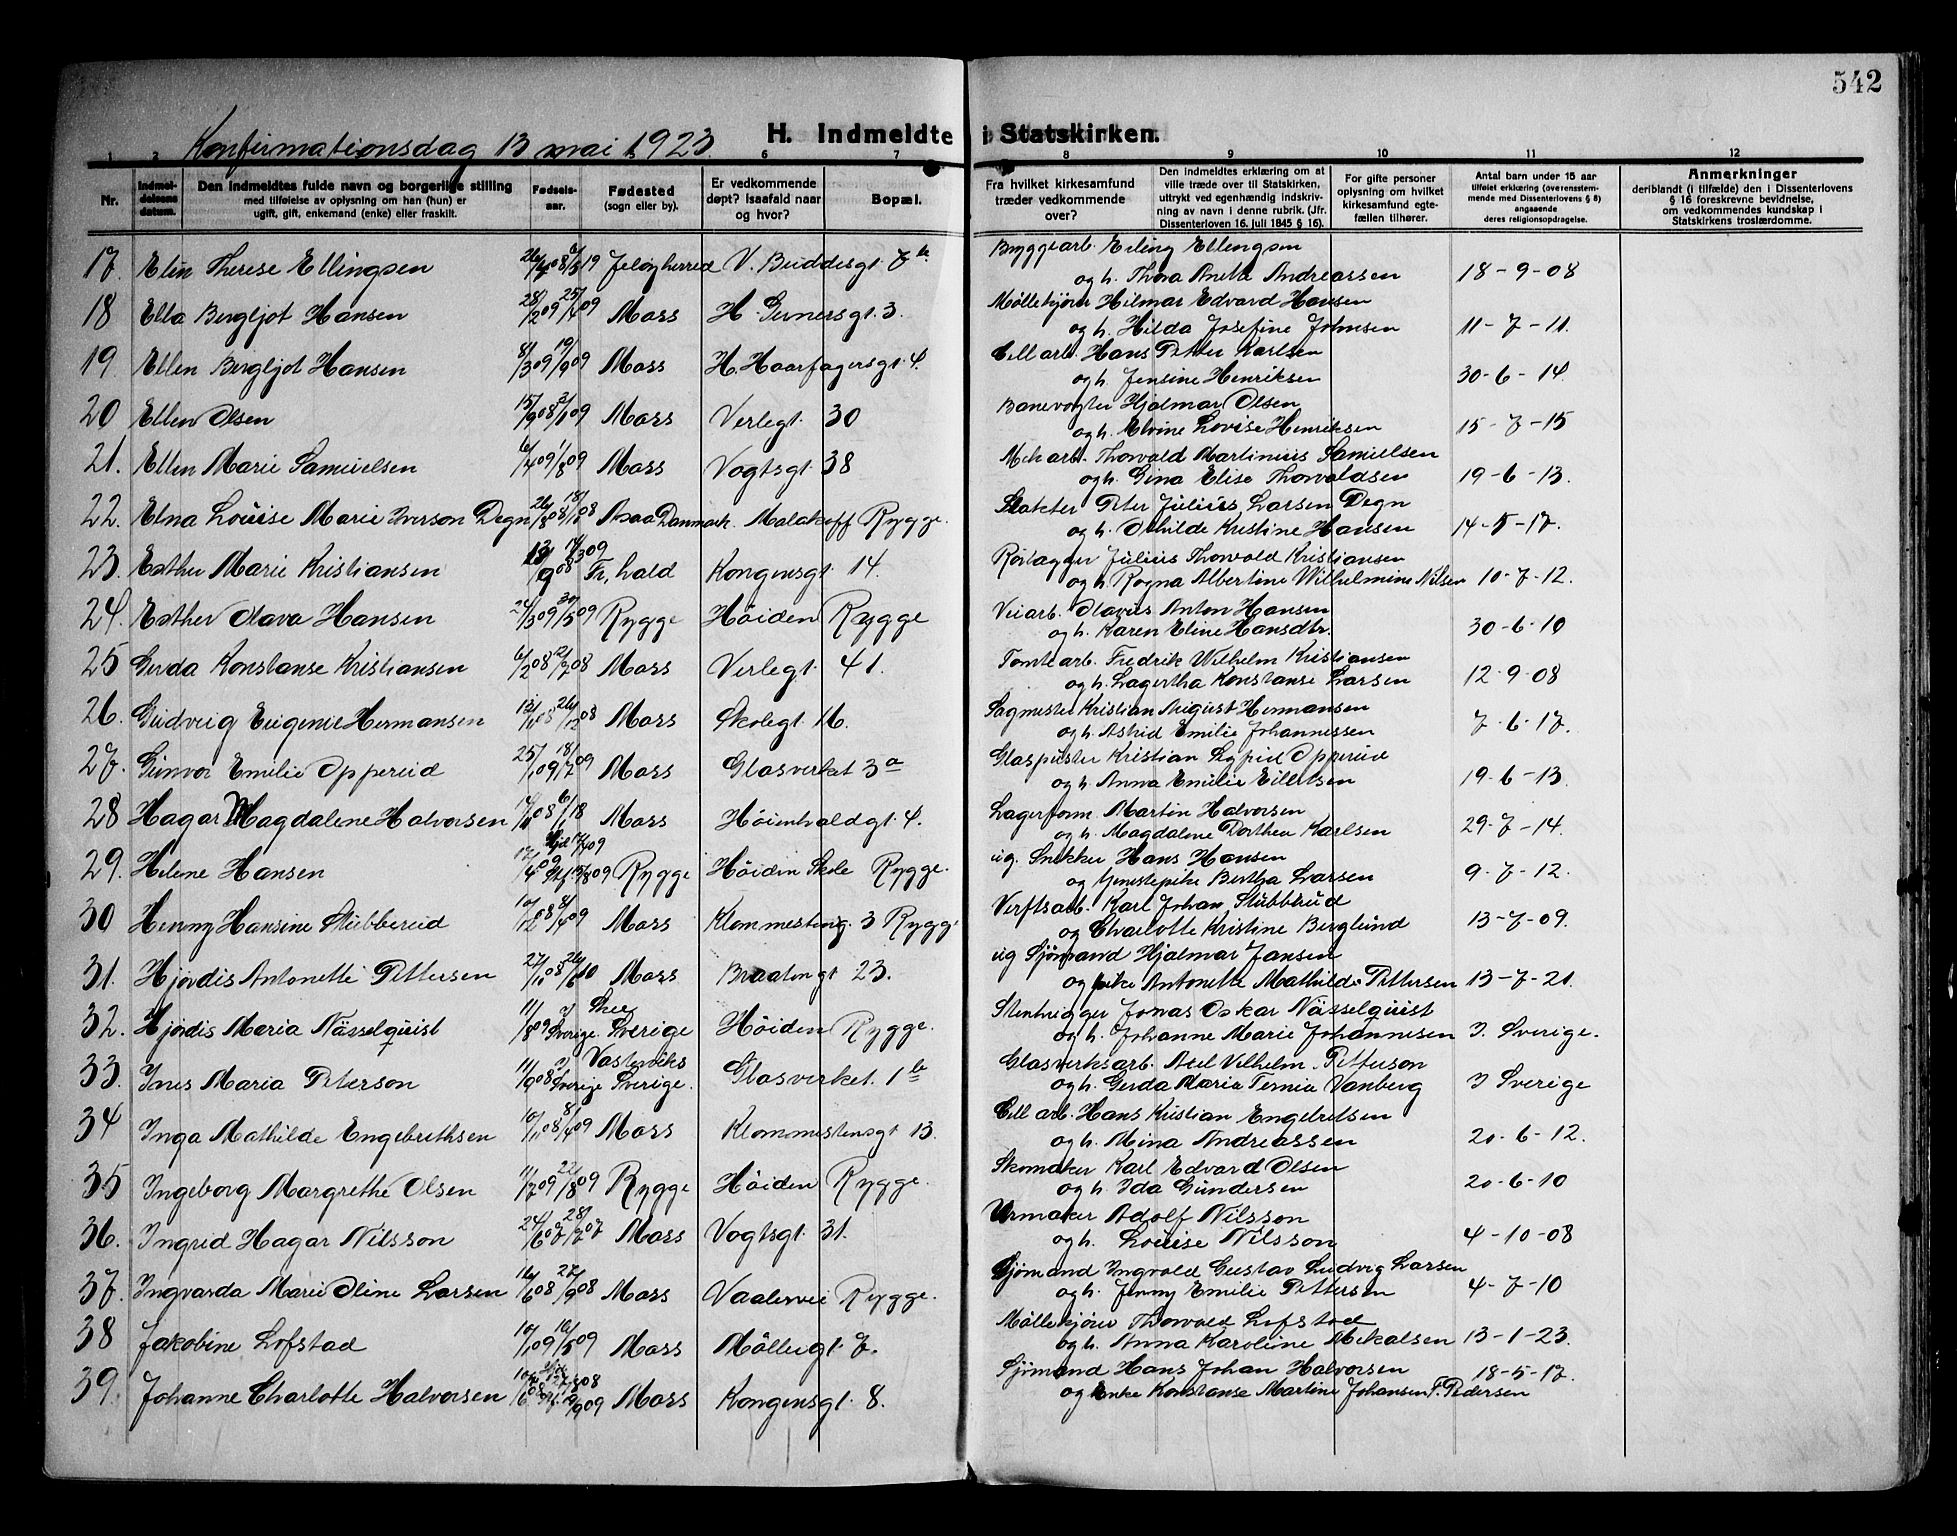 542
Konfirmationsdag 13 mai 1923.
H. Indmeldte i Statskirken.
1 2 6 7 8 9 10 11 12
Nr.
Indmeldelsens datum.
Den indmeldtes fulde navn og borgerlige stilling
med tilføielse av oplysning om han (hun) er
ugift, gift, enkemand (enke) eller fraskilt.
Fødselsaar.
Fødested
(sogn eller by).
Er vedkommende
døpt? Isaafald naar
og hvor?
Bopæl.
Fra hvilket kirkesamfund
træder vedkommende
over?
Den indmeldtes erklæring om at
ville træde over til Statskirken,
uttrykt ved egenhændig indskrivning
av navn i denne rubrik. (Jfr.
Dissenterloven 16. juli 1845 § 16).
For gifte personer
oplysning om hvilket
kirkesamfund egtefællen
tilhører.
Antal barn under 15 aar
tilføiet erklæring (overensstemmende
med Dissenterlovens § 8)
angaaende
deres religionsopdragelse.
Anmerkninger
deriblandt (i tilfælde) den i Dissenterlovens
§ 16 foreskrevne bevidnelse,
om vedkommendes kundskap i
Statskirkens troslærdomme.
17. Elin Therese Ellingsen Jeløy herred V. Buddesgt. 7 b Bryggearb. Erling Ellingsen
og h. Thora Anette Andreassen 18-9-08
18 Ella Bergljot Hansen 28/2 09 25/4 09 Moss H. Gernersgt. 3. Møllekjører Hilmar Edvard Hansen
og h. Hilda Josefine Johnsen 11-7-11.
19. Ellen Bergljot Hansen 8/3 09 19/9 09 Moss H. Haarfagersgt. 4. Cell arb. Hans Petter Karlsen
og h. Jensine Henriksen 30-6-14.
20 Ellen Olsen 15/9 08 Moss Verlegt. 30 Banevogter Hjalmar Olsen
og h. Elvine Lovise Henriksen 15-7-15
21. Ellen Marie Samuelsen 6/4 09 1/8 09 Moss Vogtsgt. 38 Mek arb. Thorvald Martinius Samuelsen
og h. Gina Elise Thorvaldsen 19-6-13.
22. Edna Louise Marie Iverson Degn Asaa Danmark. Malakoff Rygge. Slakter Peter Julius Larsen Degn
og h. Othilde Kristine Hansen 14-5-17.
23. Esther Marie Kristiansen Fr. hald Kongensgt. 14. Rørlægger Julius Thorvald Kristiansen
og h. Ragna Albertine Wilhelmine Nilsen 10-7-12.
24. Esther Olava Hansen 24/3 09 30/5 09 Rygge Høiden Rygge Veiarb. Olavus Anton Hansen
og h. Karen Eline Hansdtr. 30-6-10
25 Gerda Konstanse Kristiansen 6/2 08 21/7 08 Moss Verlegt. 41. Tomtearb. Fredrik Wilhelm Kristiansen
og h. Lagertha Konstanse Larsen 12-9-08
26. Gudveig Eugenie Hermansen 13/11 08 26/12 08 Moss Skolegt. 16. Sagmester Kristian August Hermansen
og h. Astrid Emilie Johannessen 7-6-17.
27. Gunvor Emilie Opperud 25/1 09 18/7 09 Moss Glasverket 3 a Glaspuster Kristian Opperud
og h. Anna Emilie Eilertsen 19-6-13
28 Hagar Magdalene Halvorsen Moss Høienhaldgt. 4. Lagerform. Martin Halvorsen
og h. Magdalene Dorthea Karlsen 29-7-14.
29. Helene Hansen Rygge Høiden Skole Rygge. ug. Snekker Hans Hansen
og tjenestepike Bertha Larsen 9-7-12.
30 Henny Hansine Stubberud 10/12 08 8/4 09 Moss Klommesteng. 3 Rygge Verftsarb. Karl Johan Stubberud
og Charlotte Kristine Berglund 13-7-09.
31. Hjørdis Antonette Pettersen Moss Braatengt 23. ug Sjømand Hjalmar Jansen
og pike Antonette Mathilde Pettersen 13-7-21.
32. Hjørdis Maria Nässelquist 11/8 09 i Sverige Skee Sverige Høiden Rygge. Stenhugger Jonas Oskar Nässelquist
og h. Johanne Marie Johannesen I Sverige.
33. Ines Maria Peterson 11/9 08 i Sverige Vasterviks Sverige. Glasverket. 1 b Glasverksarb. Axel Vilhelm Petterson
og h. Gerda Maria Fernia Vanberg I Sverige
34 Inga Mathilde Engebrethsen 10/11 08 8/4 09 Moss Klommestensgt 13. Cell arb. Hans Kristian Engebretsen
og h. Mina Andreassen 20-6-12.
35 Ingeborg Margrethe Olsen 11/7 09 22/8 09 Rygge Høiden Rygge. Skomaker Karl Edvard Olsen
og h. Ida Gundersen 20-6-10
36. Ingrid Hagar Nilsson 24/6 07 28/7 07 Moss Vogtsgt. 31. Urmaker Adolf Nilsson
og h. Louise Nilsson 4-10-08
37. Ingvarda Marie Oline Larsen 16/6 08 27/9 08 Moss Vaalervei Rygge. Sjømand Ingvald Gustav Ludvig Larsen
og h. Jenny Emilie Pettersen 4-7-10
38 Jakobine Lofstad 10/1 09 16/5 09 Moss Møllergt. 7. Møllekjører Thorvald Lofstad
og h. Anna Karoline Mikalsen 13-1-23.
39. Johanne Charlotte Halvorsen Moss Kongensgt. 8. Sjømand Hans Johan Halvorsen 18-5-17.
og enke Konstanse Martine Johansen F. Pedersen